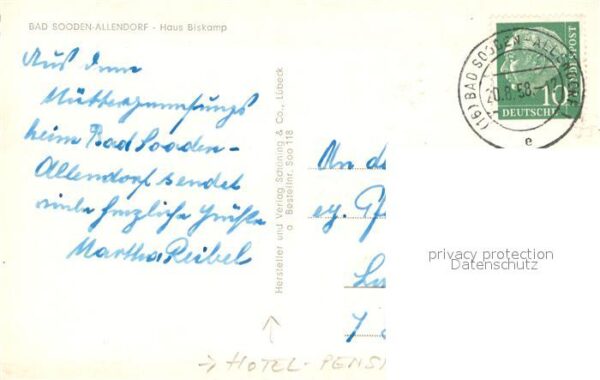 BAD SOODEN-ALLENDORF - Haus Biskamp
Aus dem
Müttergenesungs
heim Bad Sooden-
Allendorf sendet
viele herzliche Grüße
Martha Reibel
Hersteller und Verlag Schöning & Co., Lübeck
Bestellnr. Soo 118
An
ev.
(16) BAD SOODEN-ALL
20.8.58
e
10
DEUTSCHE
BUNDESPOST
privacy protection
Datenschutz
→ HOTEL-PENSI